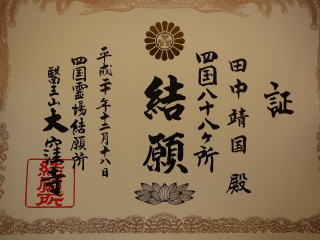 証
田中靖国 殿
四国八十八ヶ所
結願
平成二十年十二月十八日
四国霊場結願所
醫王山 大窪寺
結願所